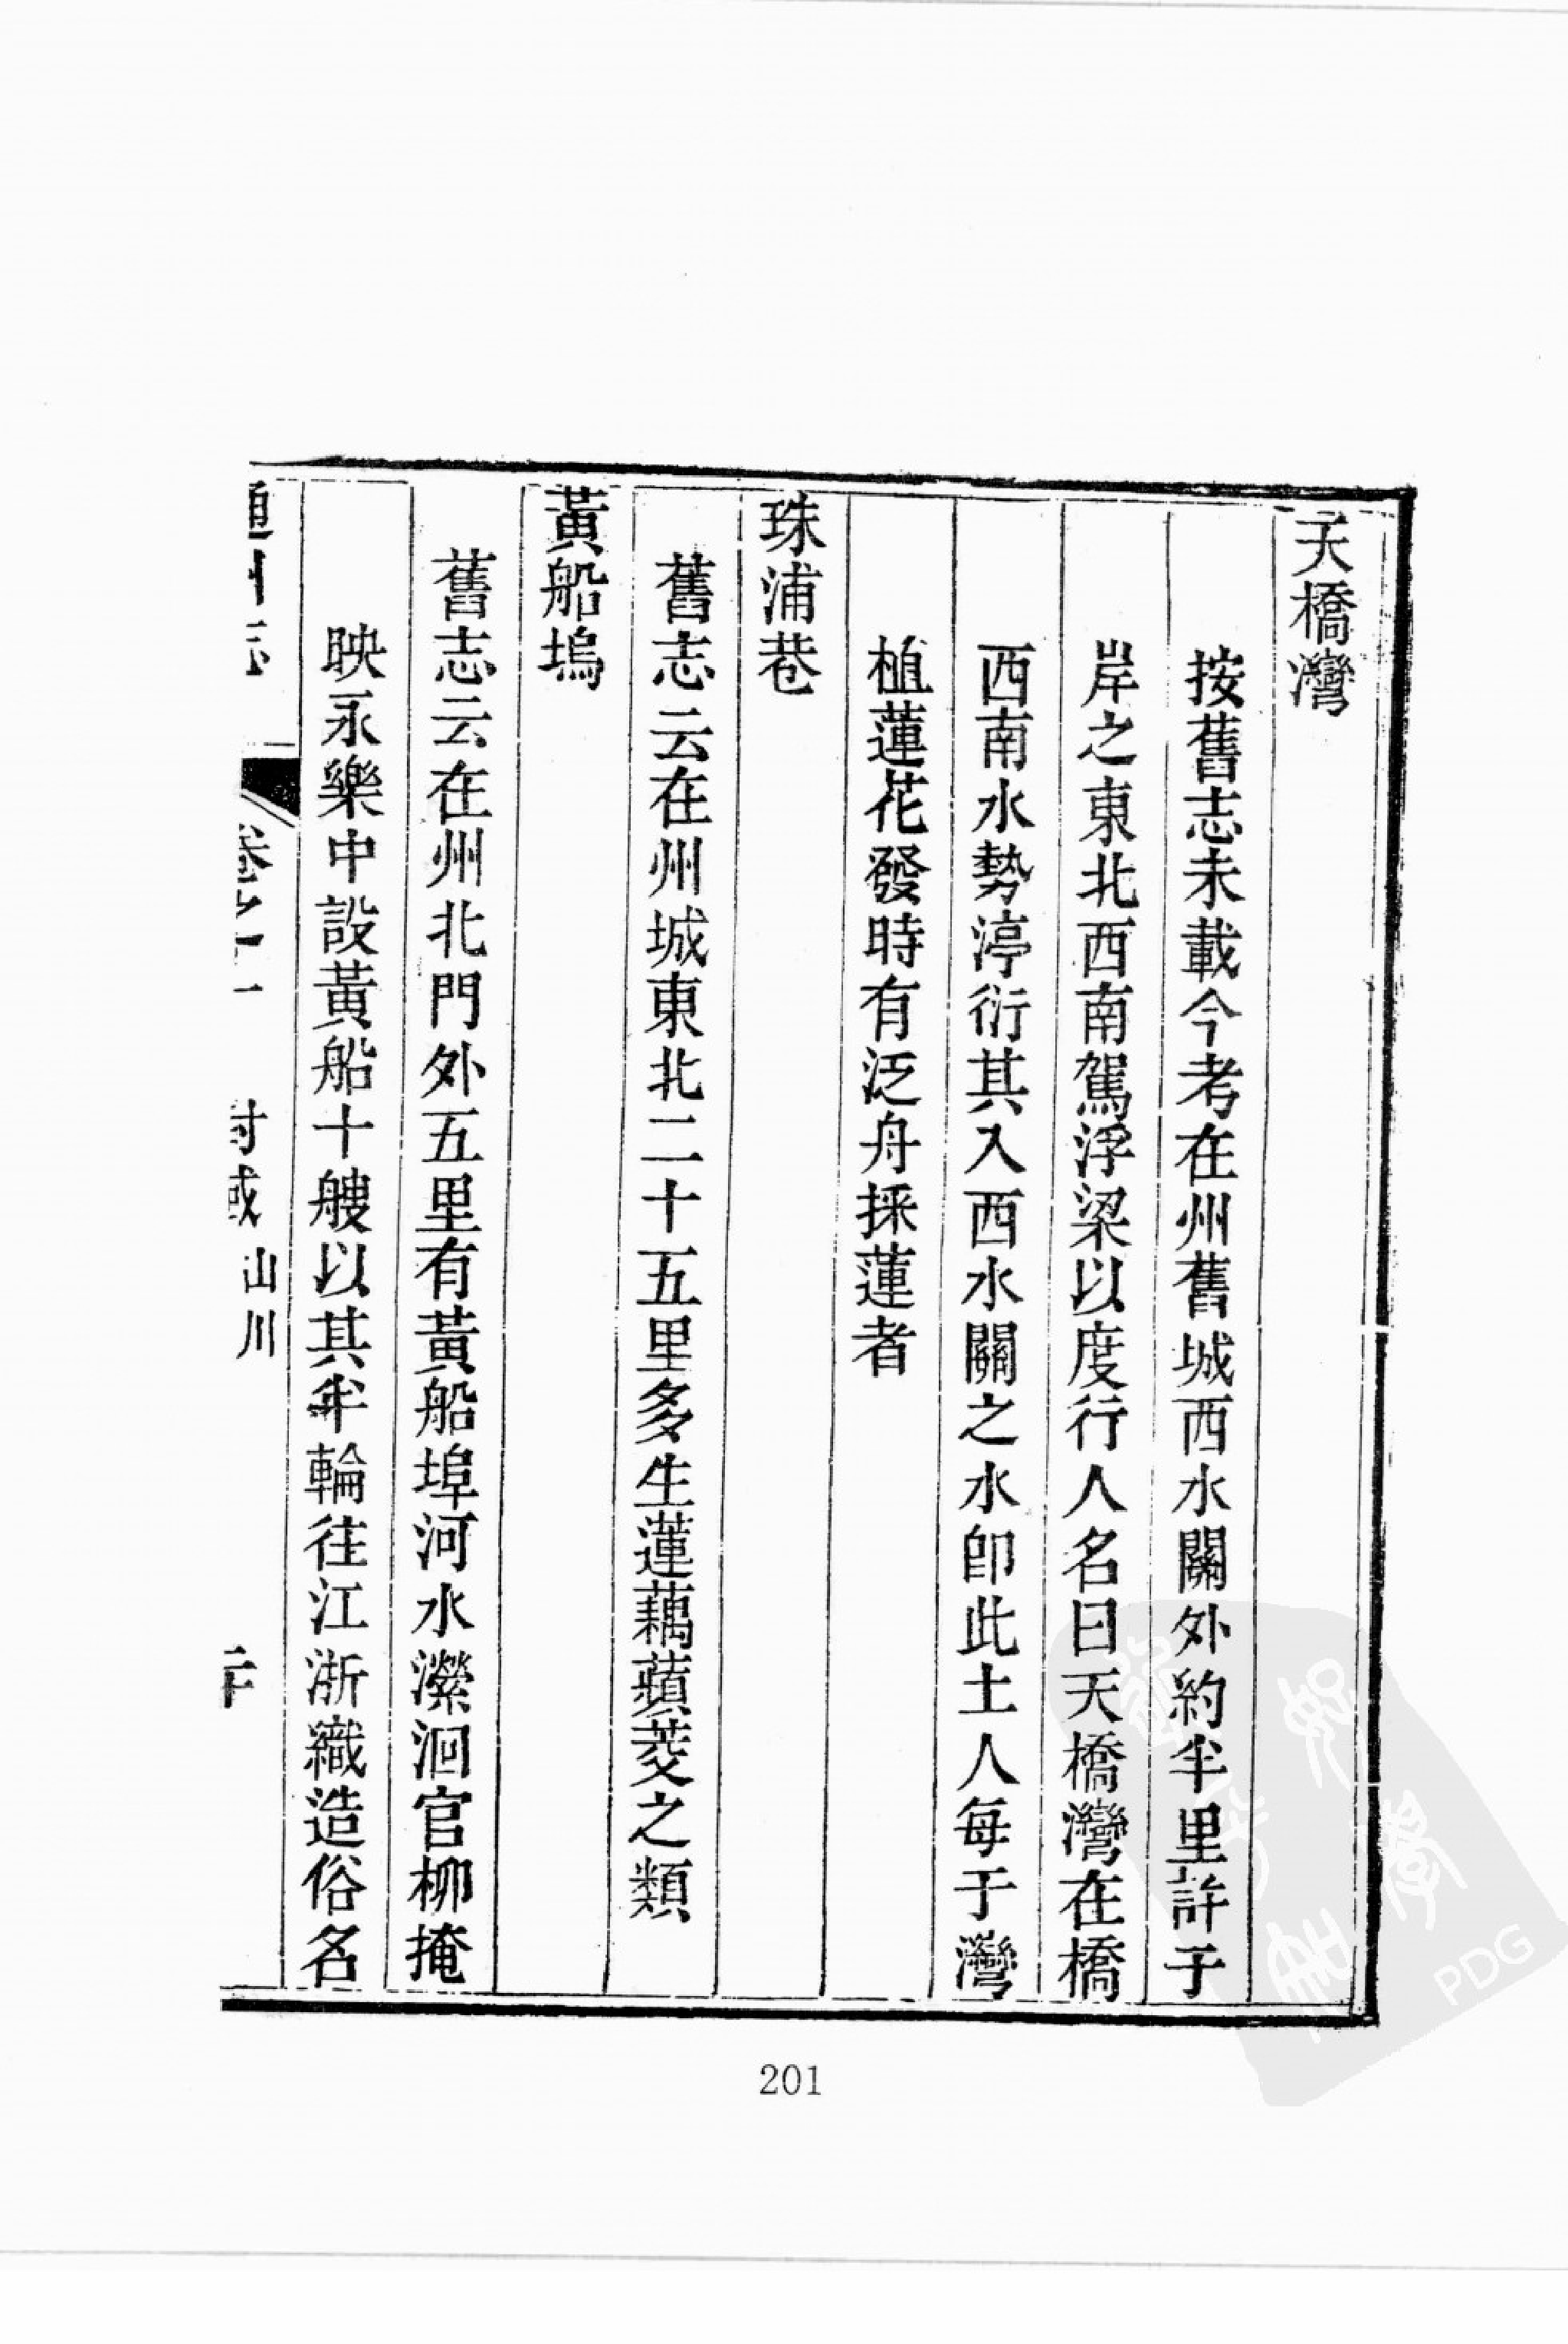 天橋灣
按舊志未載今考在州舊城西水關外約半里許于
岸之東北西南駕浮梁以度行人名曰天橋灣在橋
西南水勢渟衍其入西水關之水卽此土人每于灣
植蓮花發時有泛舟採蓮者
珠浦巷
舊志云在州城東北二十五里多生蓮藕蘋菱之類
黃船塢
舊志云在州北門外五里有黃船埠河水瀠洄官柳掩
映永樂中設黃船十艘以其半輪往江浙織造俗名
通州志 卷之一 封域 山川
201
PDG